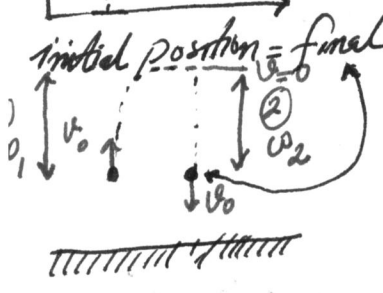 initial position = final
v=0
v₀
②
ω₂
v₀